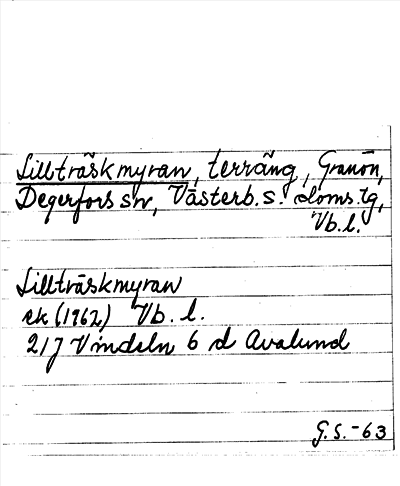 Lillträskmyran, terräng, Granön,
Degerfors sn, Västerb. s. doms.tg,
Vb.l.
Lillträskmyran
ek (1962) Vb. l.
21J Vindeln 6 d Avalund
G.S.-63